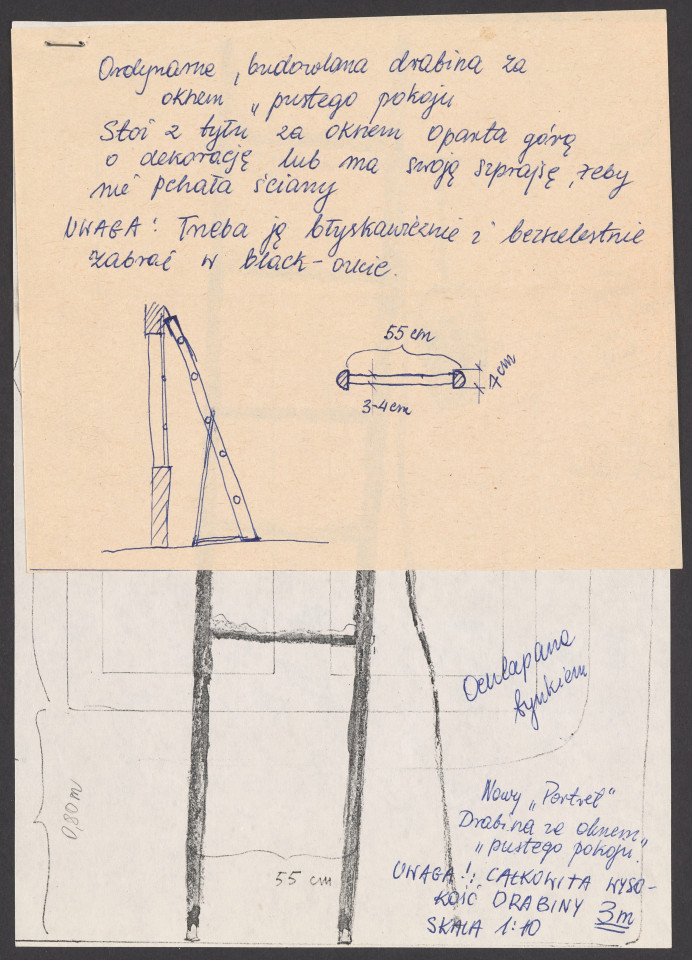 Ordynarna, budowlana drabina za
oknem „pustego pokoju
Stoi z tyłu za oknem oparta górą
o dekorację lub ma swoją szprajsę, żeby
nie pchała ściany
UWAGA! Trzeba ją błyskawicznie i bezszelestnie
zabrać w black-oucie.
55 cm
7 cm
3-4 cm
Ochlapana
tynkiem
0,80 m
55 cm
Nowy „Portret”
Drabina za oknem
„pustego pokoju.”
UWAGA!: CAŁKOWITA WYSO-
KOŚĆ DRABINY 3m
SKALA 1:10